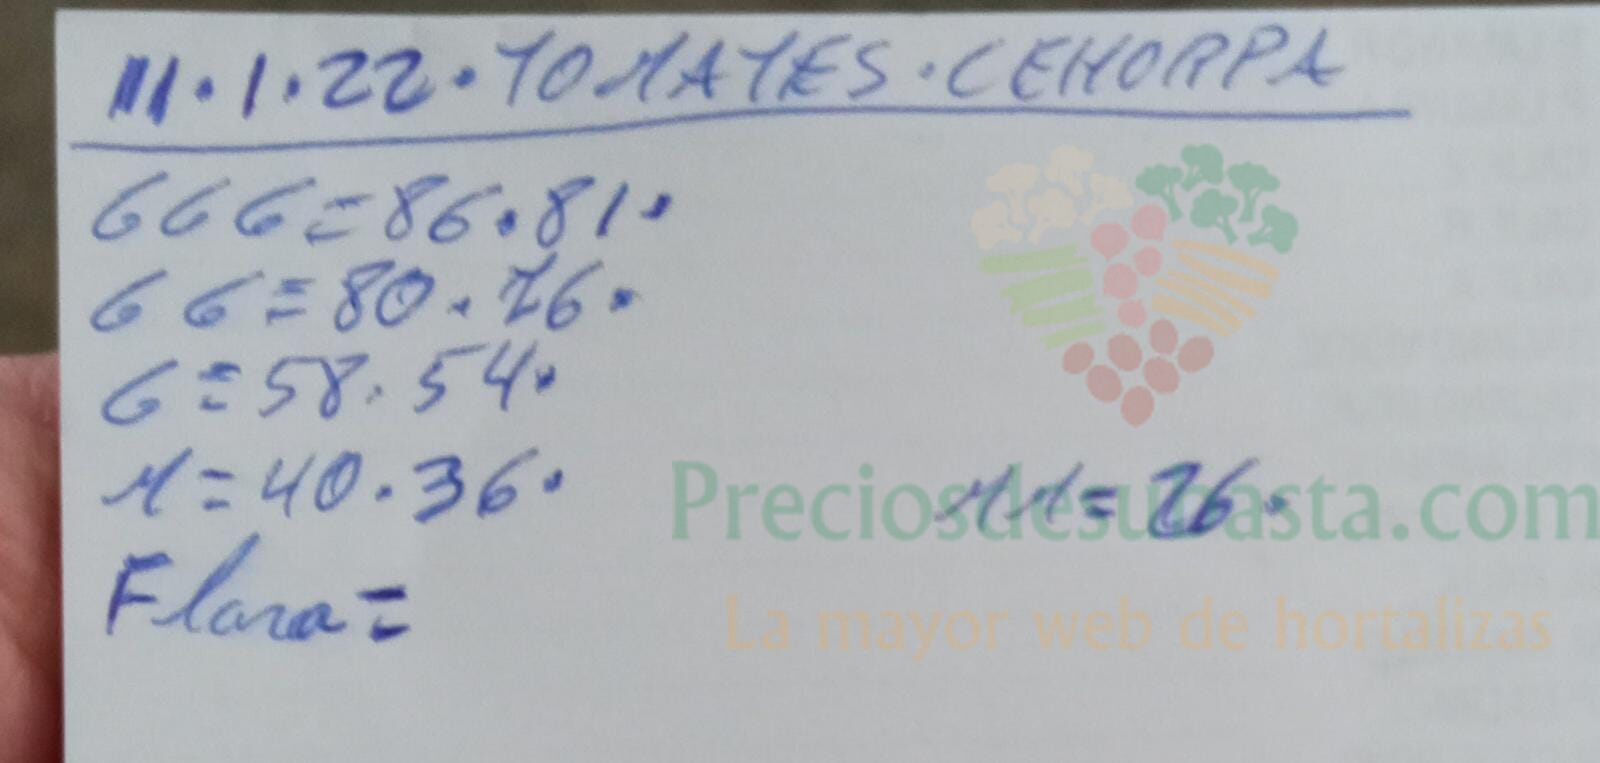 11.1.22.TOMATES.CEHORPA
GGG=86.81.
GG=80.76.
G=58.54.
M=40.36. MM=26.
Preciosdesubasta.com
Flora=
La mayor web de hortalizas